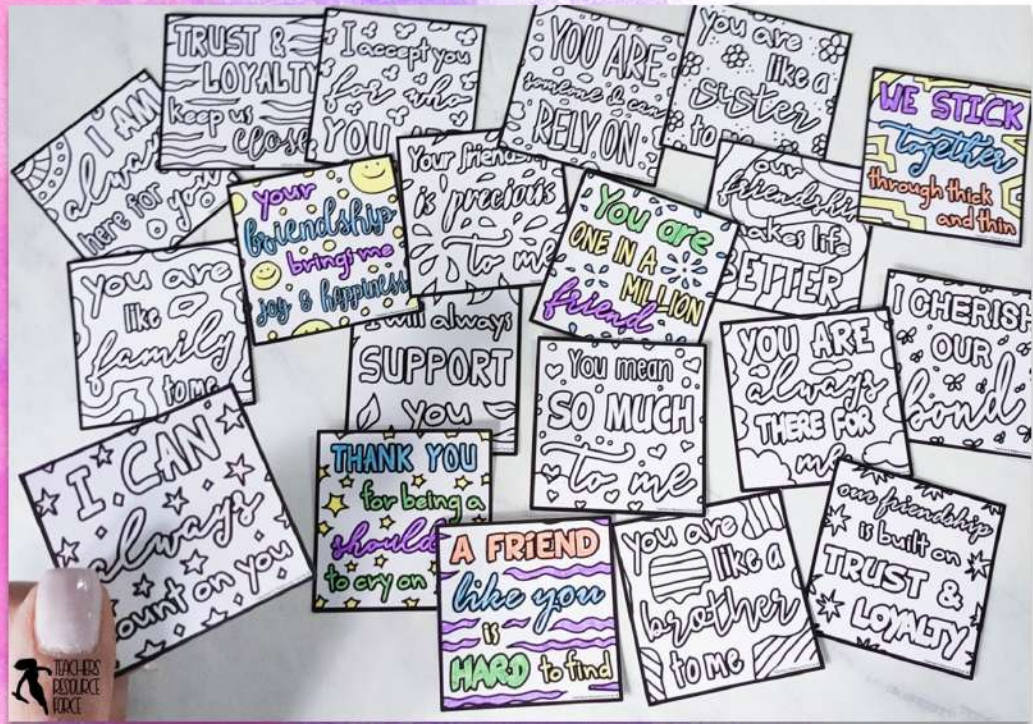 TRUST &
LOYALTY
keep us
close
I accept you
for who
YOU
YOU ARE
someone I can
RELY ON
you are
like a
sister
to
WE STICK
together
through thick
and thin
I AM
always
here for
you
your
friendship
brings me
joy & happiness
Your
is precious
to me
You are
ONE IN A
MILLION
friend
our
friendship
makes life
BETTER
you are
like
family
to me
I will always
SUPPORT
you
You mean
SO MUCH
to me
YOU ARE
always
THERE FOR
me
I CHERISH
OUR
bond
I CAN
always
count on you
THANK YOU
for being a
to cry on
A FRIEND
like you
is
HARD to find
you are
like a
brother
to me
our friendship
is built on
TRUST &
LOYALTY
TEACHERS
RESOURCE
FORCE